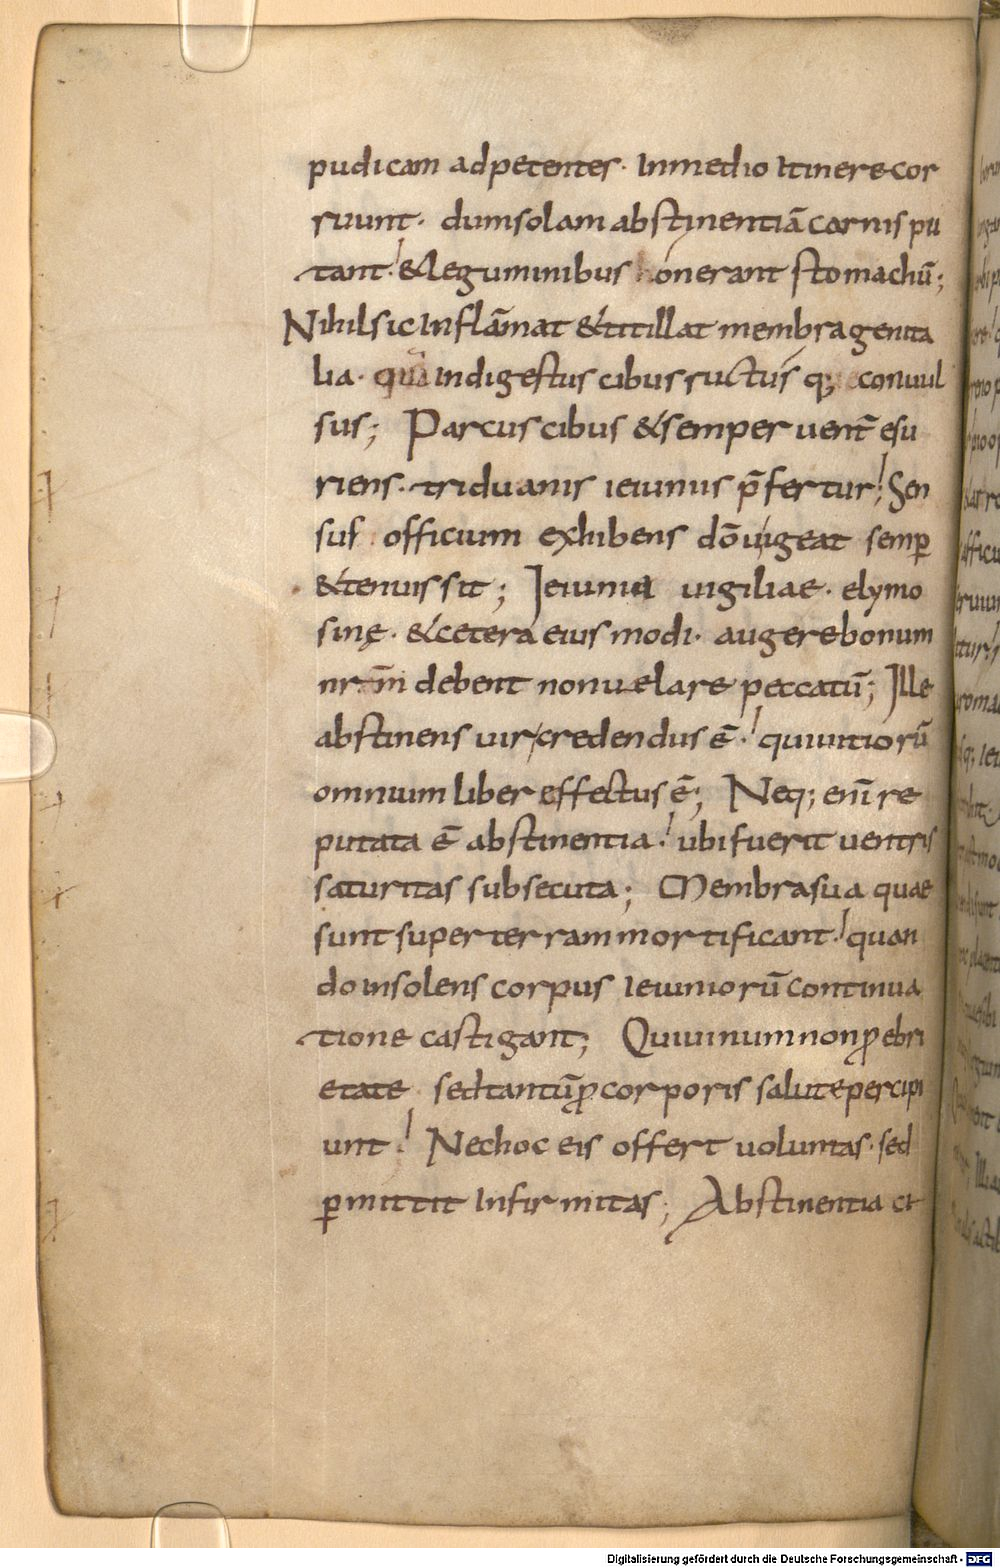 pudicam adpetentes · Inmedio Itinere cor
ruunt · dum solam abstinentiā carnis pu
tant · & leguminibus onerant stomachū ;
Nihil sic Inflāmat & titillat membra genita
lia · quā indigestus cibus ructus q; conuul
sus ; Parcus cibus & semper uent̄ esu
riens · triduanis ieiuniis p̄fertur ; Sen
sus officium exhibens dō uigeat semp̄
& tenuis sit ; Ieiunia uigiliae · elymo
sinę · & cetera eius modi · augere bonum
nr̄m debent non uelare peccatū ; Ille
abstinens uir credendus ē · qui uitiorū
omnium liber effectus ē ; Neq; enī re
putata ē abstinentia · ubi fuerit uentris
saturitas subsecuta ; Membra sua quae
sunt super terram mortificant · quan
do insolens corpus Ieiuniorū continua
tione castigant ; Qui uinum non ꝓ ebri
etate sed tantū ꝓ corporis salute percipi
unt · Nec hoc eis offert uoluntas · sed
ꝑmittit Infirmitas ; Abstinentia ci
Digitalisierung gefördert durch die Deutsche Forschungsgemeinschaft - DFG